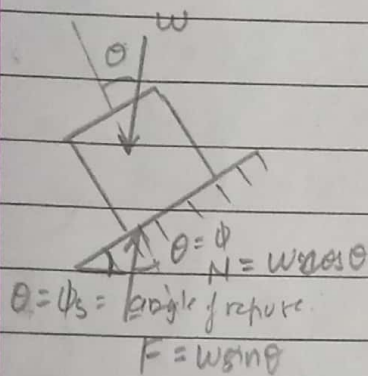 W
θ
θ = φ
N = Wcosθ
θ = φs = angle of repose.
F = Wsinθ